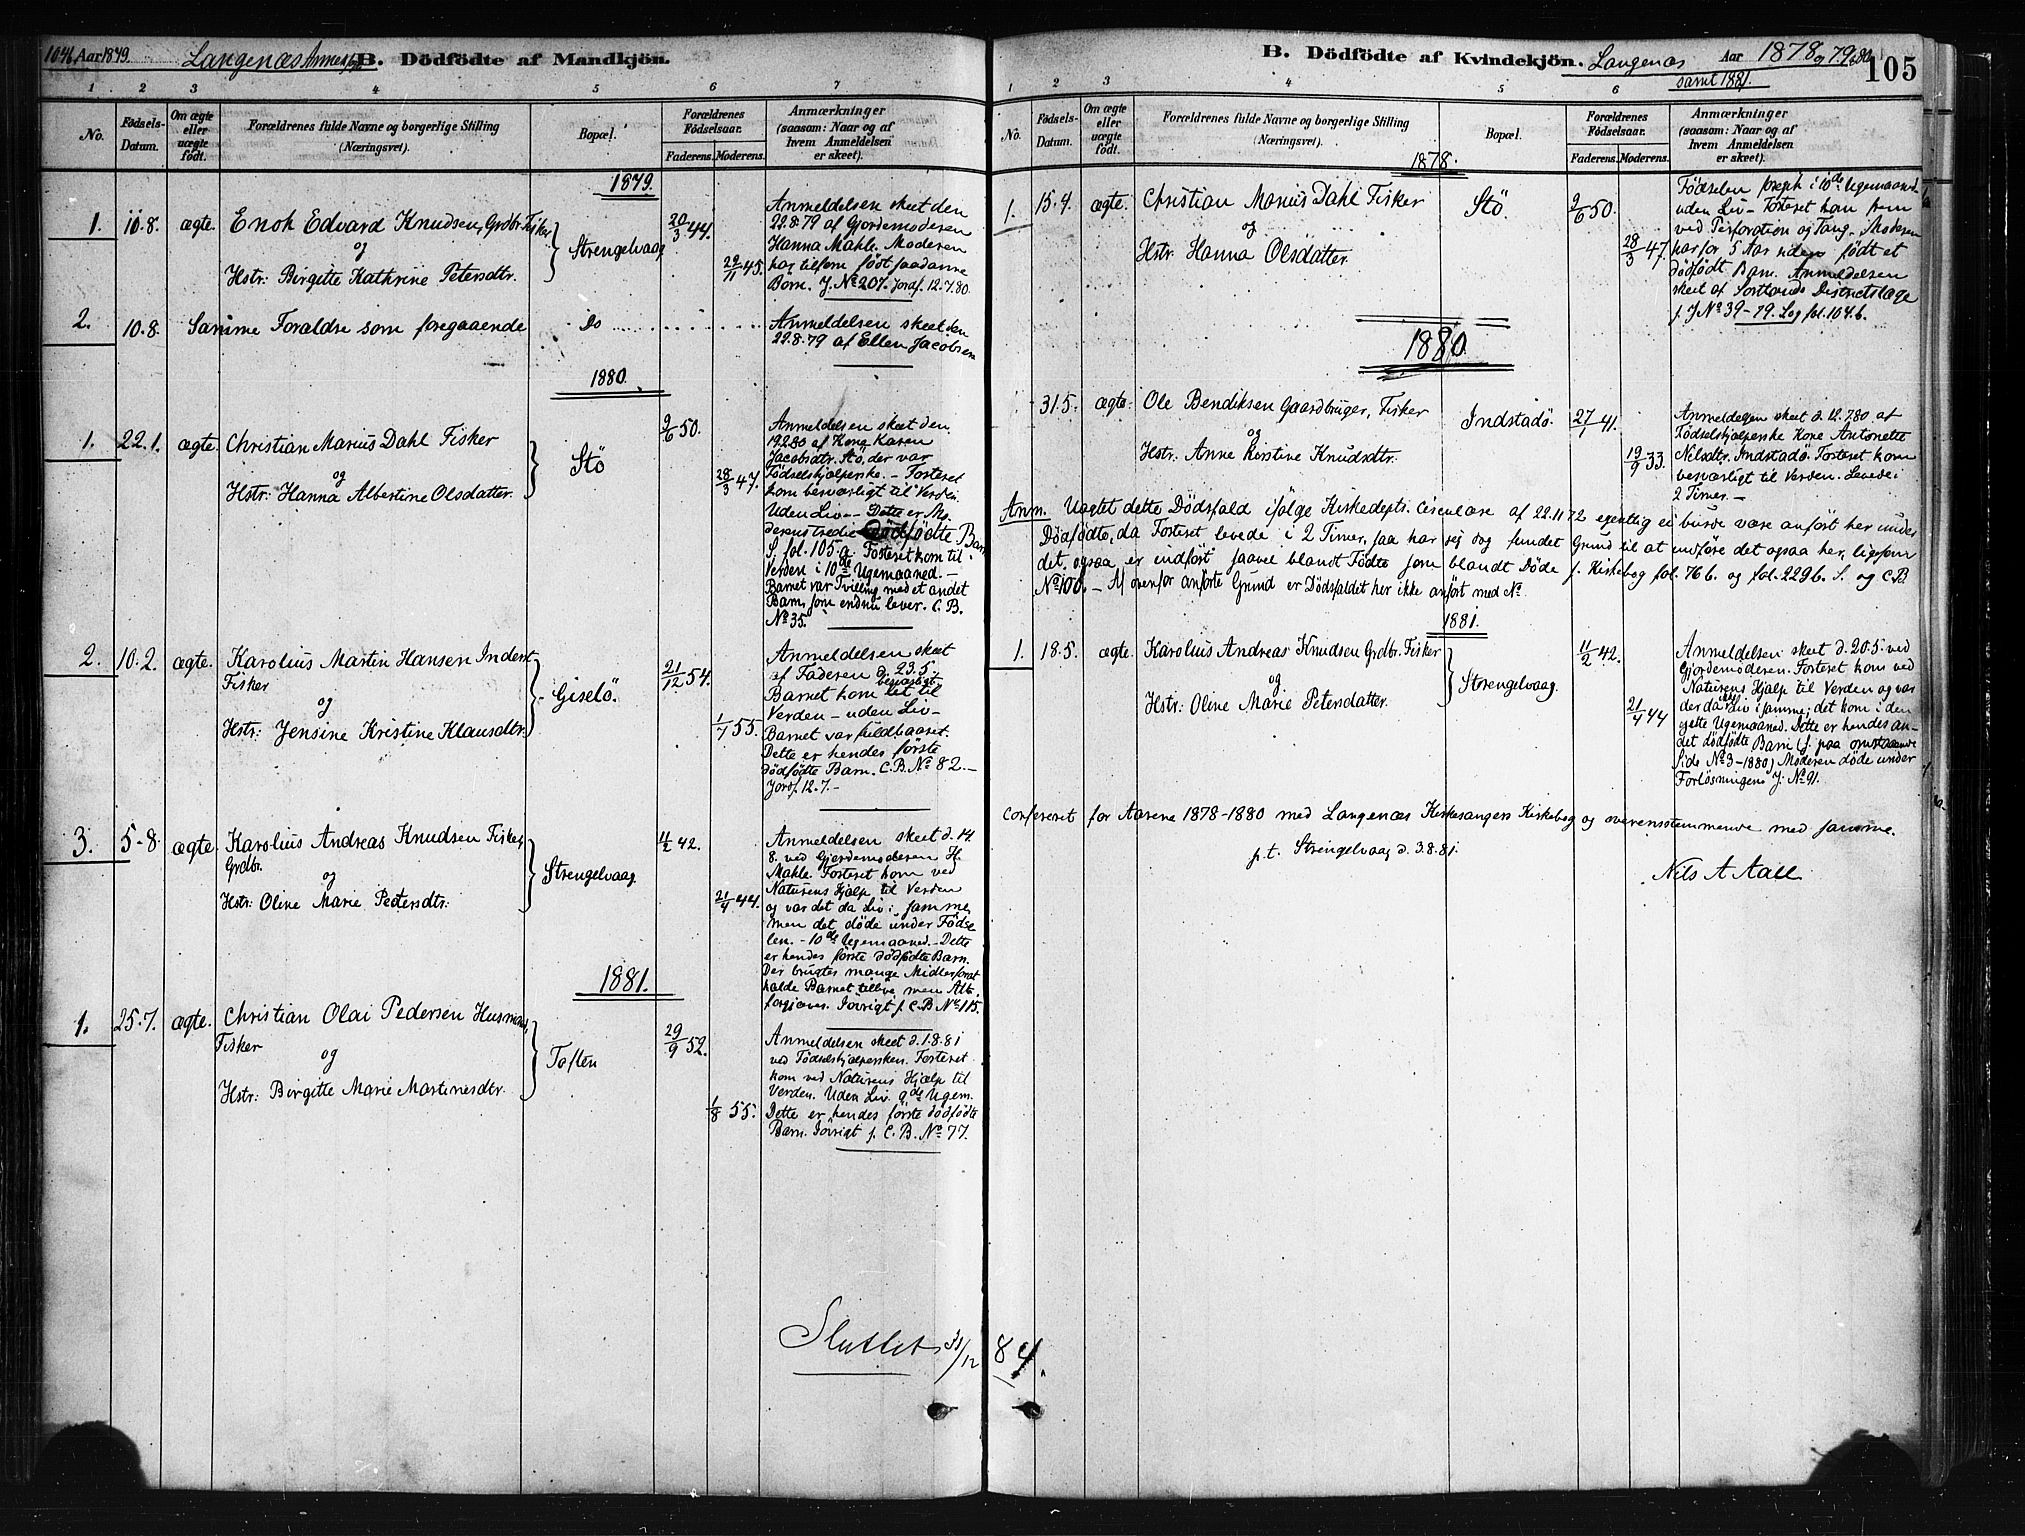 104b Aar 1879. Langenæs Annex B. Dödfödte af Mandkjön.
1 2 3 4 5 6 7
No.
Födsels-Datum.
Om ægte eller uægte födt.
Forældrenes fulde Navne og borgerlige Stilling (Næringsvei).
Bopæl.
Forældrenes Födselsaar.
Faderens. Moderens.
Anmærkninger (saasom: Naar og af hvem Anmeldelsen er skeet).
1879.
1. 10.8. ægte. Enok Edvard Knudsen, Grdbr. Fisker
og
Hstr. Birgitte Kathrine Petersdtr.
Strengelvaag
20/3 44.
22/11 45.
Anmeldelsen skeet den
22.8.79 af Gjordemoderen
Hanna Mahle. Moderen
har tilforn födt saadanne
Börn. J. No 207. Jordf. 12.7.80.
2. 10.8. Samme Forældre som foregaaende Do
Anmeldelsen skeet den
22.8.79 af Ellen Jacobsen
1880.
1. 22.1. ægte. Christian Marius Dahl Fisker
og
Hstr: Hanna Albertine Olsdatter.
Stö
9/6 50.
28/3 47.
Anmeldelsen skeet den
19280 af Kone Karen
Jacobsdtr. Stö, der var
Födselshjælperske. - Fosteret
kom besværligt til Verden
Uden Liv - Dette er Mo
derens tredie Dödfödte Barn
S. fol. 105 a. Fosteret kom til
Verden i 10de Ugemaaned. -
Barnet var Tvilling med et andet
Barn, som endnu lever. C. B.
No 35.
2. 10.2. ægte. Karolius Martin Hansen Inderst
Fisker
og
Hstr: Jensine Kristine Klausdtr.
Giselö.
21/12 54.
1/7 55.
Anmeldelsen skeet
af Faderen d. 23.5.
besværligt
Barnet kom let til
Verden - uden Liv -
Barnet var fuldbaaret.
Dette er hendes förste
dödfödte Barn. C. B. No 82. -
Jordf. 12.7. -
3. 5-8. ægte. Karolius Andreas Knudsen Fisker,
Grdbr.
og
Hstr: Oline Marie Pedersdtr:
Strengelvaag.
11/2 42.
21/4 44.
Anmeldelsen skeet d. 14
8. ved Gjordemoderen H.
Mahle. Fosteret kom ved
Naturens Hjælp til Verden
og var det da Liv i samme,
men det döde under Födse
len. - 10de Ugemaaned. - Dette
er hendes förste dödfödte Barn.
Der brugtes mange Midler for at
holde Barnet tillive, men Alt
forgjæves. Iövrigt f. C. B. No 115.
1881.
1. 25.7. ægte. Christian Olai Pedersen Husmand,
Fisker
og
Hstr: Birgitte Marie Martinesdtr.
Toften
29/9 52.
1/8 55.
Anmeldelsen skeet d. 1.8.81
ved Födselshjælpersken. Fosteret
kom ved Naturens Hjælp til
Verden. Uden Liv. 9de Ugem.
Dette er hendes förste dödfödte
Barn. Iövrigt f. C. B. No 77.
Sluttet 31/12 84.
B. Dödfödte af Kvindekjön. Langenæs Aar 1878 og 79, 80 105
samt 1881.
1 2 3 4 5 6
No.
Födsels-Datum.
Om ægte eller uægte födt.
Forældrenes fulde Navne og borgerlige Stilling (Næringsvei).
Bopæl.
Forældrenes Födselsaar.
Faderens. Moderens.
Anmærkninger (saasom: Naar og af hvem Anmeldelsen er skeet).
1878.
1. 15.4. ægte. Christian Marius Dahl Fisker
og
Hstr: Hanna Olsdatter.
Stö.
9/6 50.
28/3 47.
Födselen foregik i 10de Ugemaaned
uden Liv - Fosteret kom frem
ved Perforation og Tang. Moderen
har for 5 Aar siden födt et
dödfödt Barn. Anmeldelsen
skeet af Sortlands Districtslæge
f. J No 39-79. Log fol. 104 b.
1880.
31.5. ægte. Ole Bendiksen Gaardbruger, Fisker
og
Hstr. Anne Kirstine Knudsdtr.
Indstadö.
27/1 41.
19/9 33.
Anmeldelsen skeet d. 12.7.80 af
Födselshjælperske Kone Antonette
Nilsdtr. Indstadö. Fosteret kom
besværligt til Verden. Levede i
2 Timer. -
Anm. Uagtet dette Dödsfald ifölge Kirkedepts. Circulære af 22.11 72 egentlig ei burde være anfört her under
Dödfödte, da Fosteret levede i 2 Timer, saa har jeg dog fundet Grund til at indföre det ogsaa her, ligesom
det ogsaa er indfört saavel blandt Födte som blandt Döde f. Kirkebog fol. 76 b. og fol. 229 b. S. og C.B
No 100. - Af ovenfor anförte Grund er Dödsfaldet her ikke anfört med No.
1881.
1. 18.5. ægte. Karolius Andreas Knudsen Grdbr. Fisker
og
Hstr: Oline Marie Petersdatter.
Strengelvaag.
11/2 42.
21/4 44
Anmeldelsen skeet d. 20.5. ved
Gjordemoderen. Fosteret kom ved
Naturens Hjælp til Verden og var
der da ikke Liv i samme; det kom i den
Ugemaaned. Dette er hendes an-
det dödfödte Barn (f. paa omstaaende
Side No 3-1880) Moderen döde under
Forlösningen J. No 91.
Confereret for Aarene 1878-1880 med Langenæs Kirkesangers Kirkebog og overensstemmende med samme.
p.t. Strengelvaag d. 3.8.81.
Nils A Aall